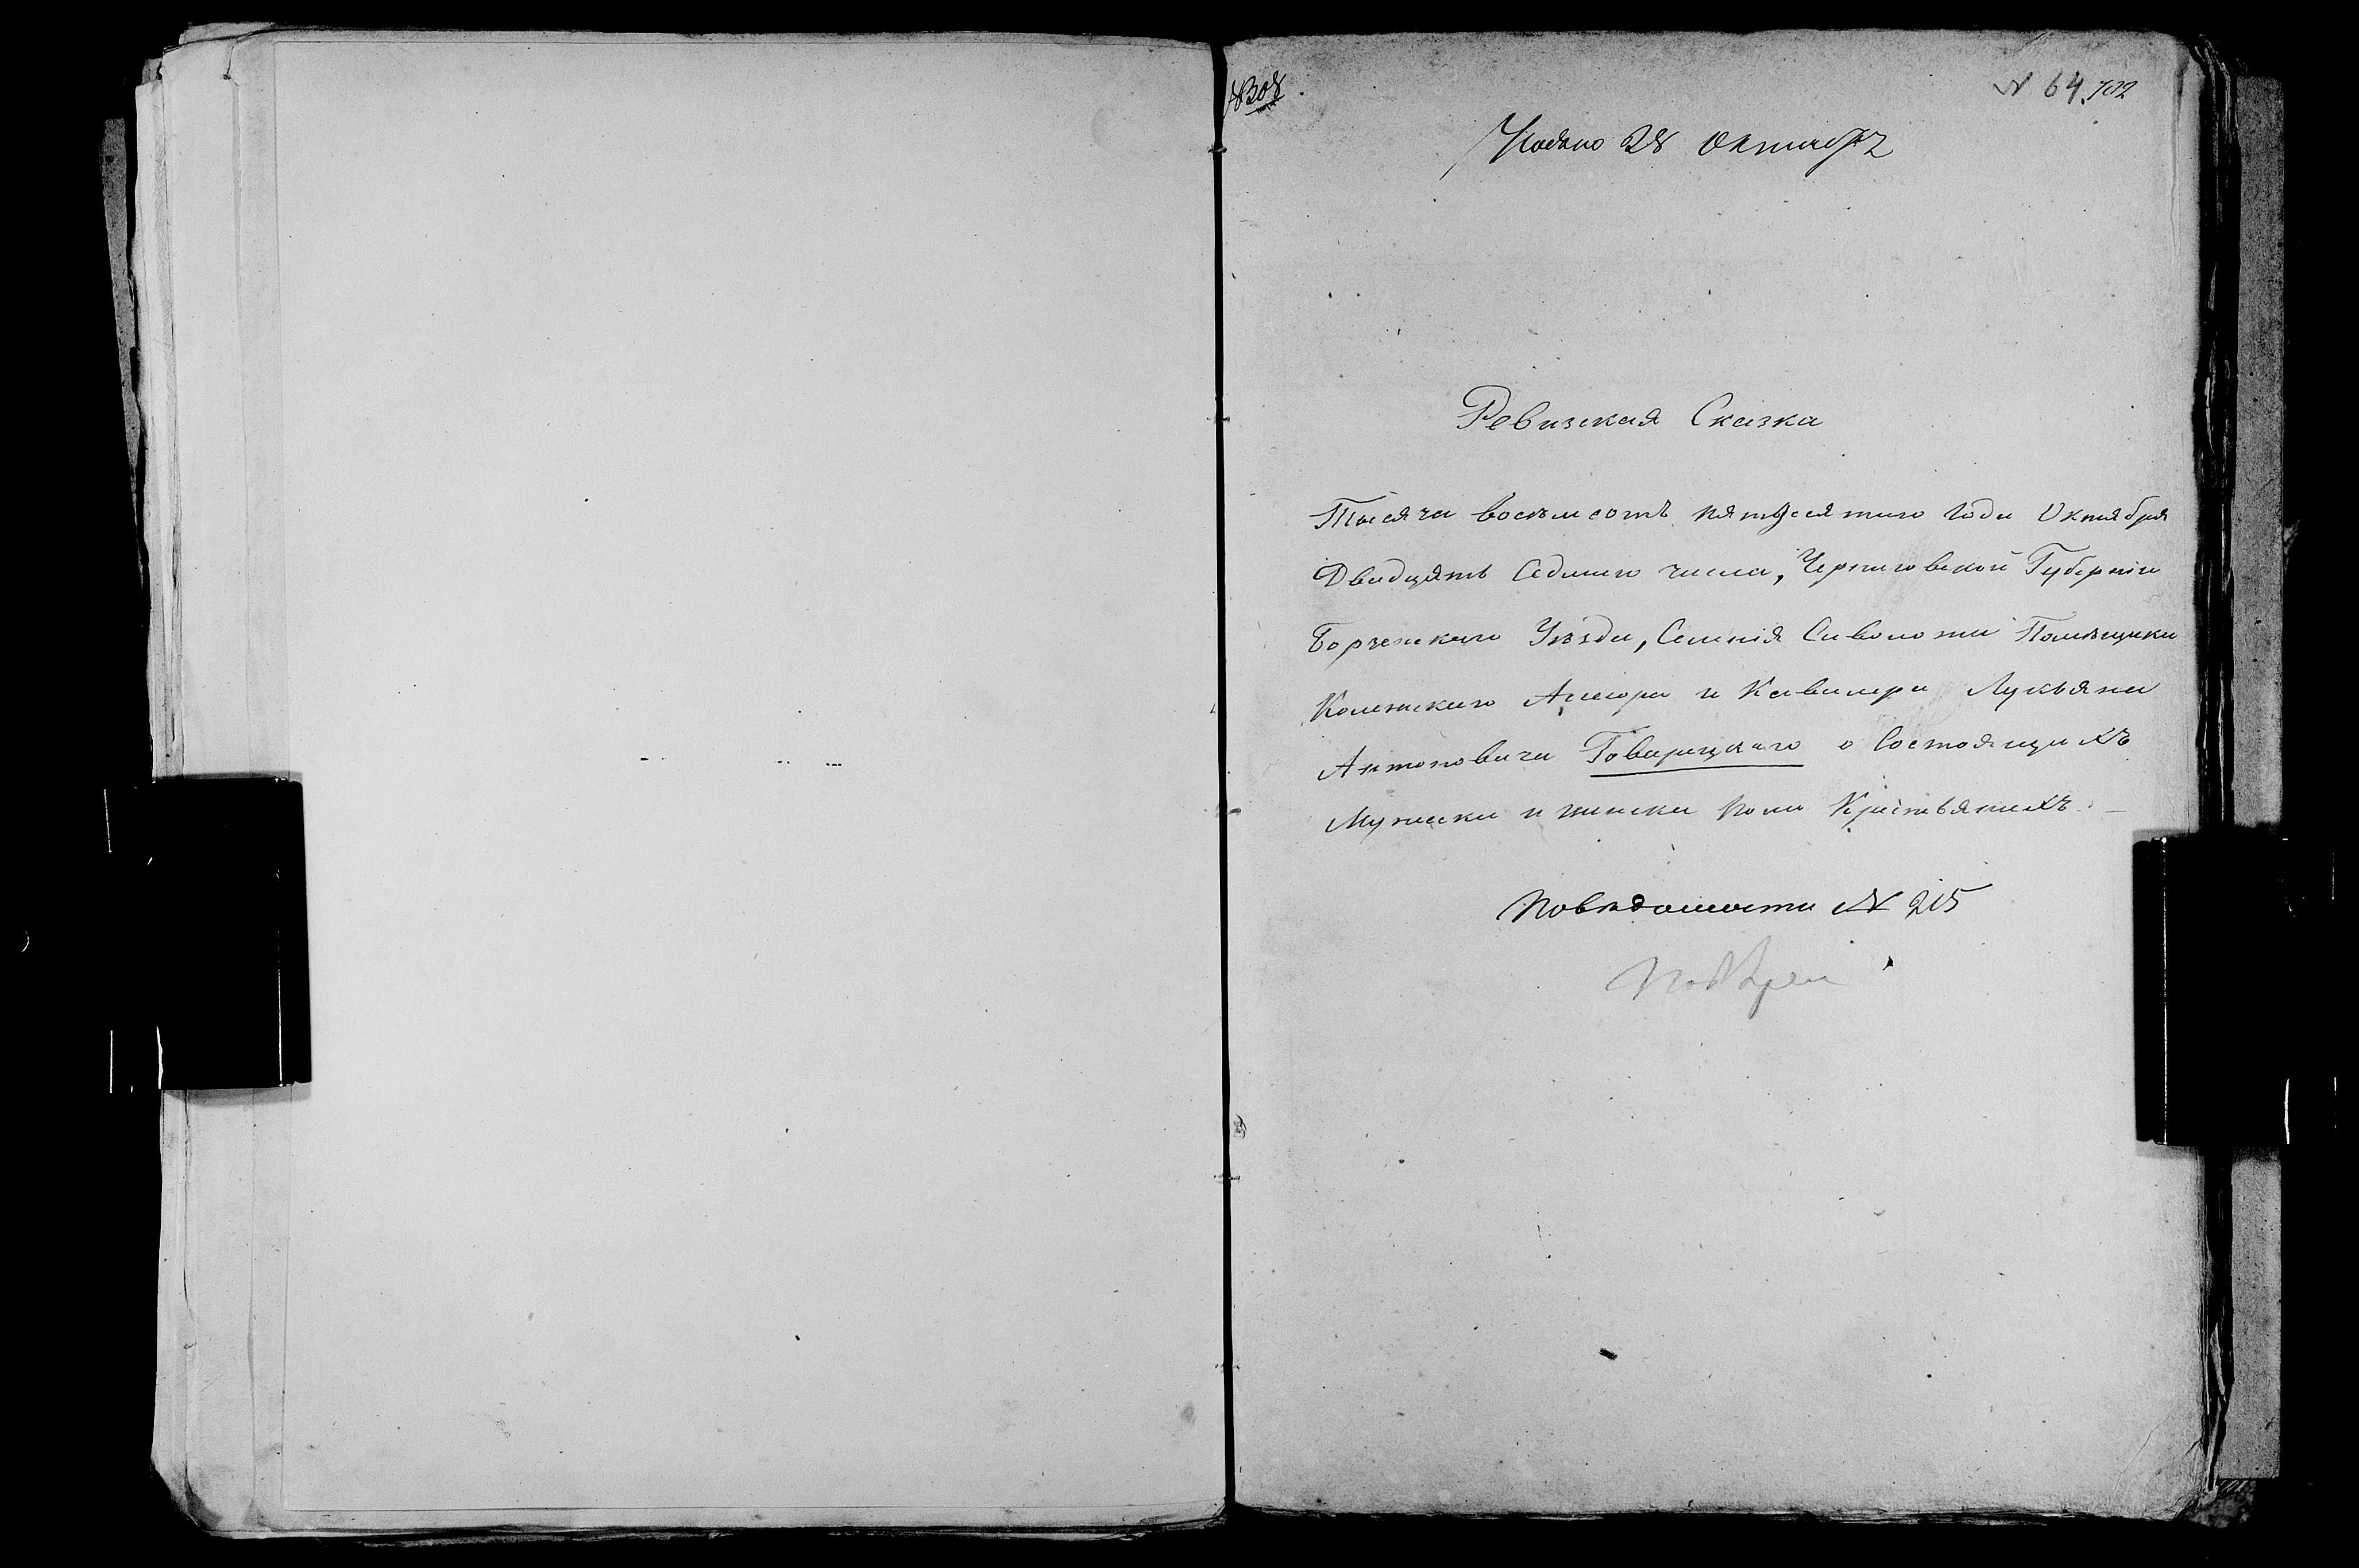 1308
№ 64. 702
Подано 28 Октября
Ревизская Сказка
Тысяча восемсотъ пятдесятого года Октября
Двадцять Седмого числа, Черниговской Губерніи
Борзенского Уѣзда, Селенія Сиволожи Помѣщика
Колежского Асесора и Кавалера Лукьяна
Антоновича Товарицкаго о Состоящихъ
Мужеска и женска пола Крестьянахъ. —
По вѣдомости № 215